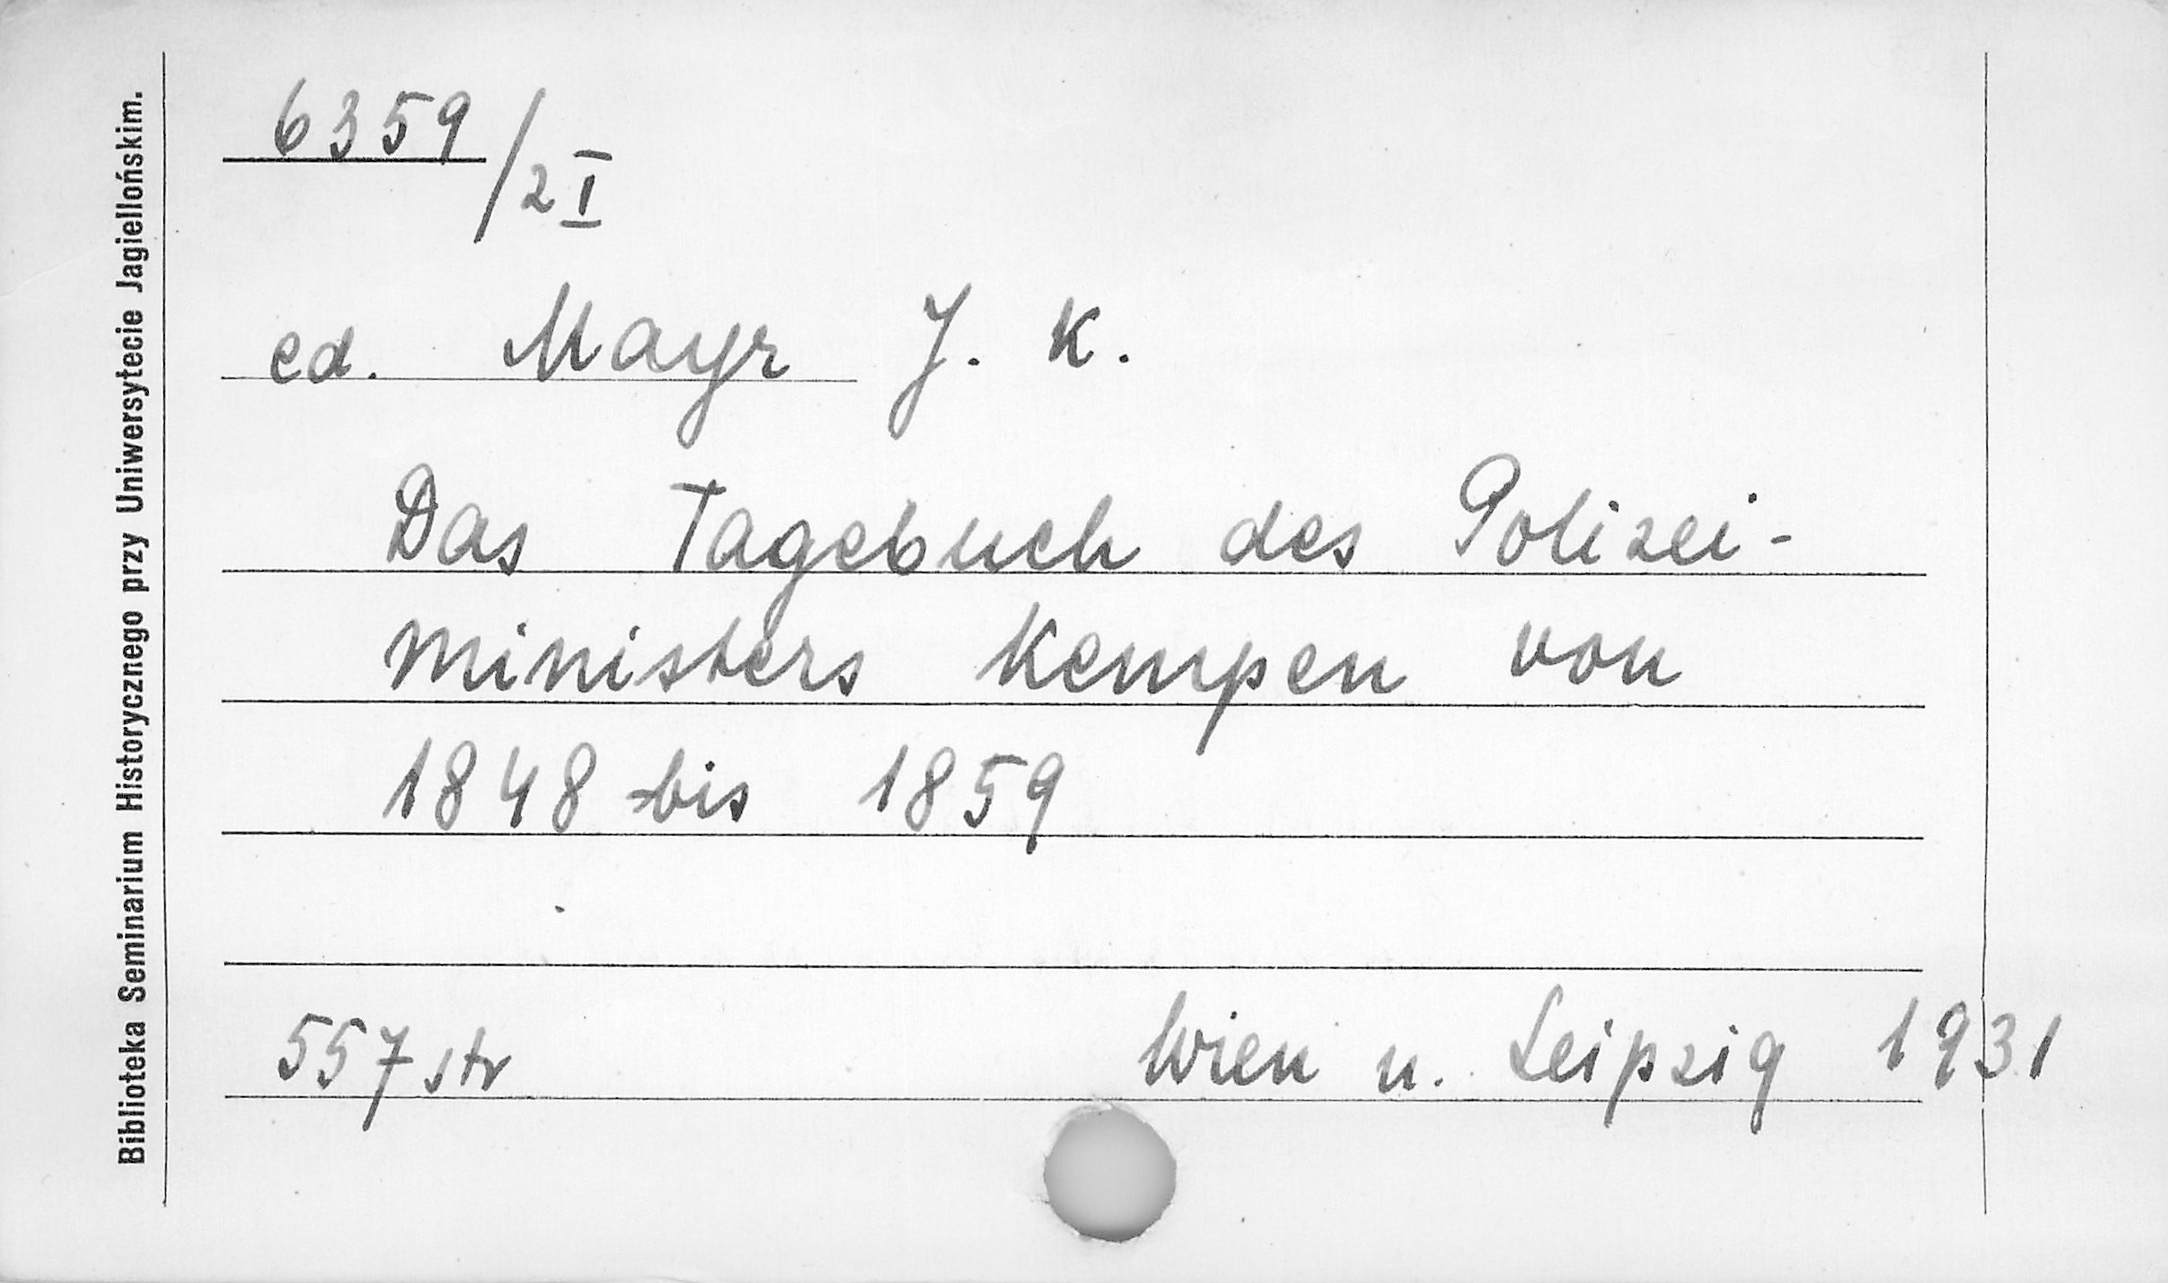 Biblioteka Seminarium Historycznego przy Uniwersytecie Jagiellońskim.
6359/2 I
ed. Mayr J. K.
Das Tagebuch des Polizei-
ministers Kempen von
1848 bis 1859
557 str
Wien u. Leipzig 1931